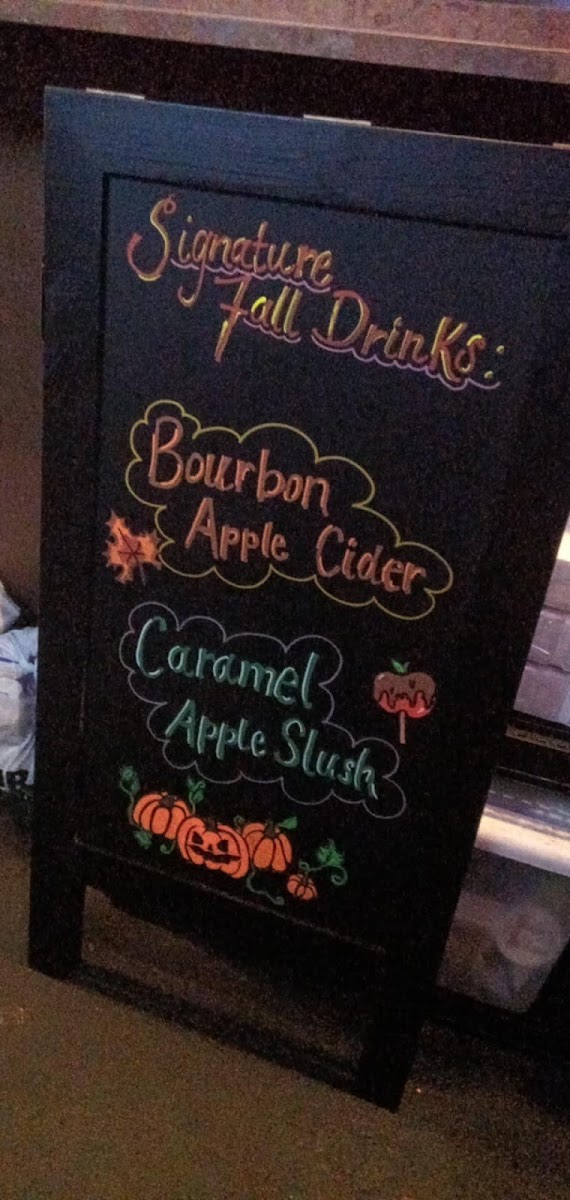 Signature
Fall Drinks:
Bourbon
Apple Cider
Caramel
Apple Slush